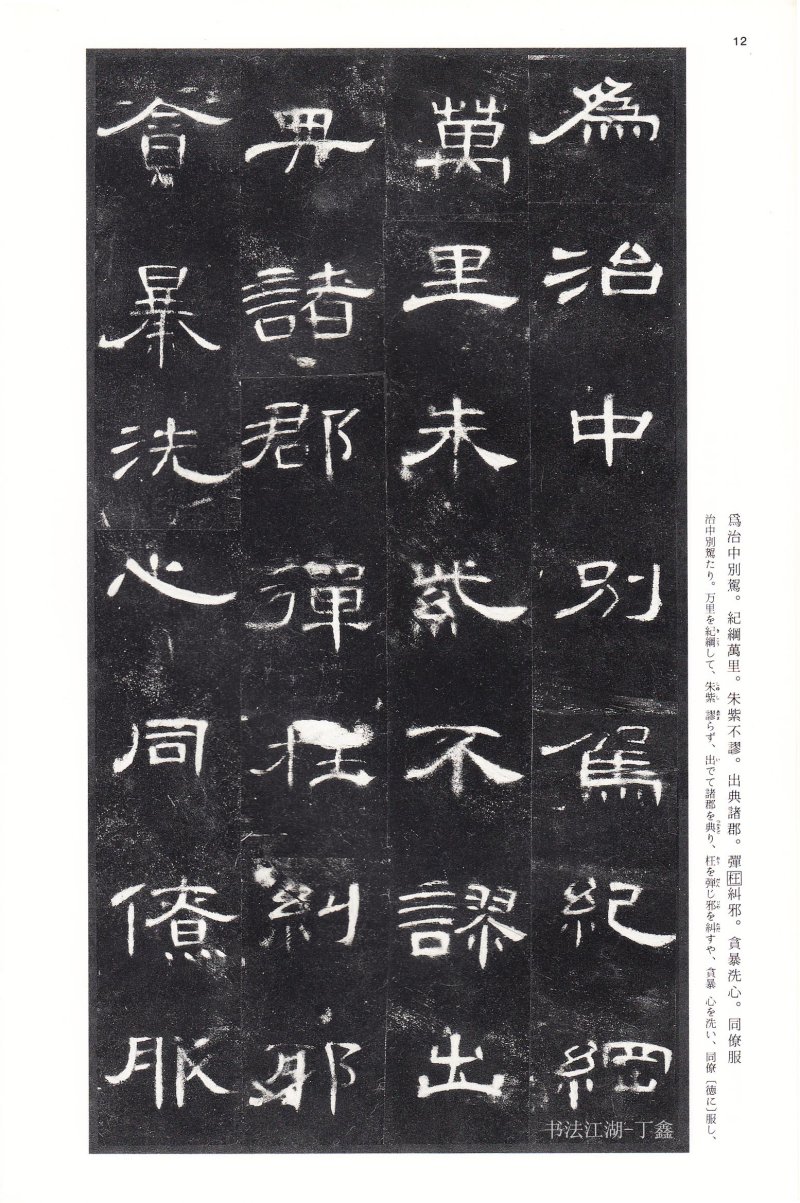 12
為治中別駕紀綱
萬里朱紫不謬出
典諸郡彈枉糾邪
貪暴洗心同僚服
爲治中別駕。紀綱萬里。朱紫不謬。出典諸郡。彈枉糾邪。貪暴洗心。同僚服
治中別駕たり。万里を紀綱して、朱紫謬らず、出でて諸郡を典り、枉を弾じ邪を糾すや、貪暴 心を洗い、同僚〔徳に〕服し、
书法江湖-丁鑫